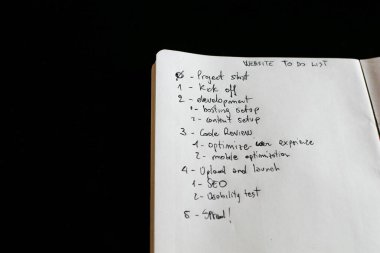 WEBSITE TO DO LIST
0 - Project start
1 - Kick off
2 - development
1 - hosting setup
2 - content setup
3 - Code Review
1 - optimize user experience
2 - mobile optimization
4 - Upload and launch
1 - SEO
2 - Usability test
5 -